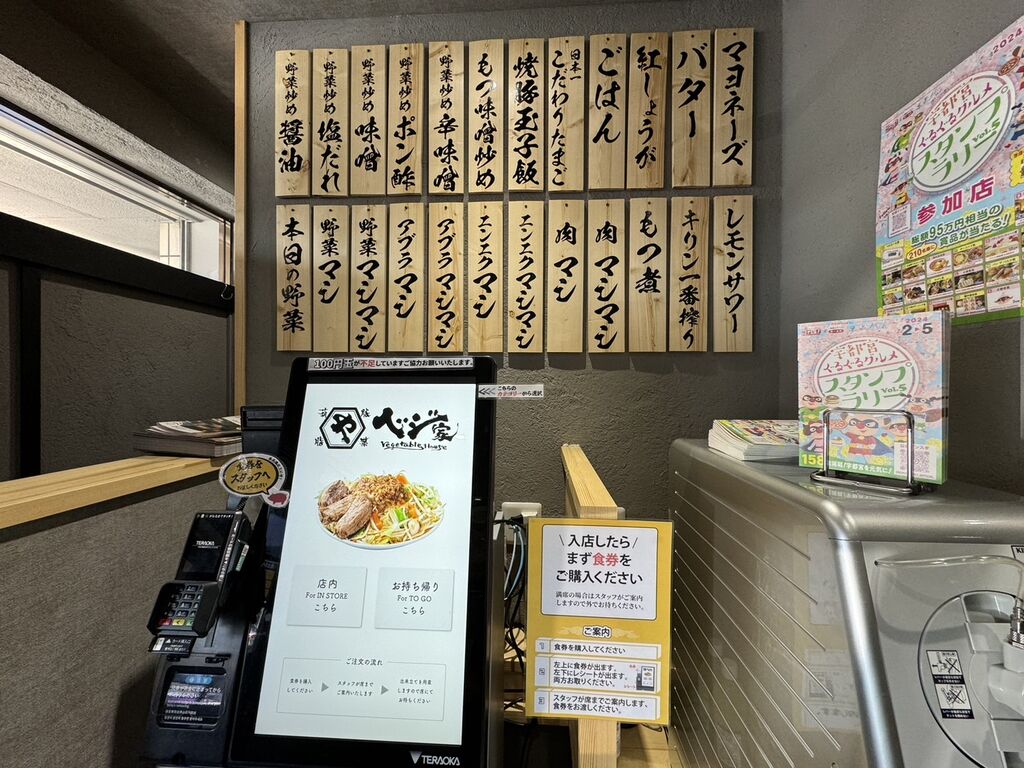 マヨネーズ
バター
紅しょうが
ごはん
日本一
こだわりたまご
焼豚玉子飯
もつ味噌炒め
野菜炒め 辛味噌
野菜炒め ポン酢
野菜炒め 味噌
野菜炒め 塩だれ
野菜炒め 醤油
レモンサワー
キリン一番搾り
もつ煮
肉マシマシ
肉マシ
ニンニクマシマシ
ニンニクマシ
アブラマシマシ
アブラマシ
野菜マシマシ
野菜マシ
本日の野菜
100円玉が不足していますご協力お願いいたします。
こちらの
カテゴリーから選択
や
ベジ家
Vegetable House
店内
For IN STORE
こちら
お持ち帰り
For TO GO
こちら
ご注文の流れ
食券を購入
してください
スタッフが席まで
ご案内いたします
TERAOKA
スタッフへ
TERAOKA
入店したら
まず食券を
ご購入ください
満席の場合はスタッフがご案内
しますので外でお待ちください。
ご案内
1 食券を購入してください
2 左上に食券が出ます。
左下にレシートが出ます。
両方お取りください。
3 スタッフが席までご案内します、
食券をお渡しください。
2024
宇都宮
ぐるぐるグルメ
スタンプ
ラリー
Vol.5
参加店
総額95万円相当の
賞品が当たる!
2024
2 5
宇都宮
ぐるぐるグルメ
スタンプ
ラリー
Vol.5
158